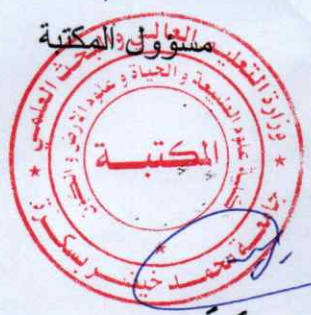 مسؤول المكتبة
وزارة التعليم العالي والبحث العلمي
كلية علوم الطبيعة و الحياة و علوم الأرض و الكون
المكتبــة
جامعة محمد خيضر بسكرة